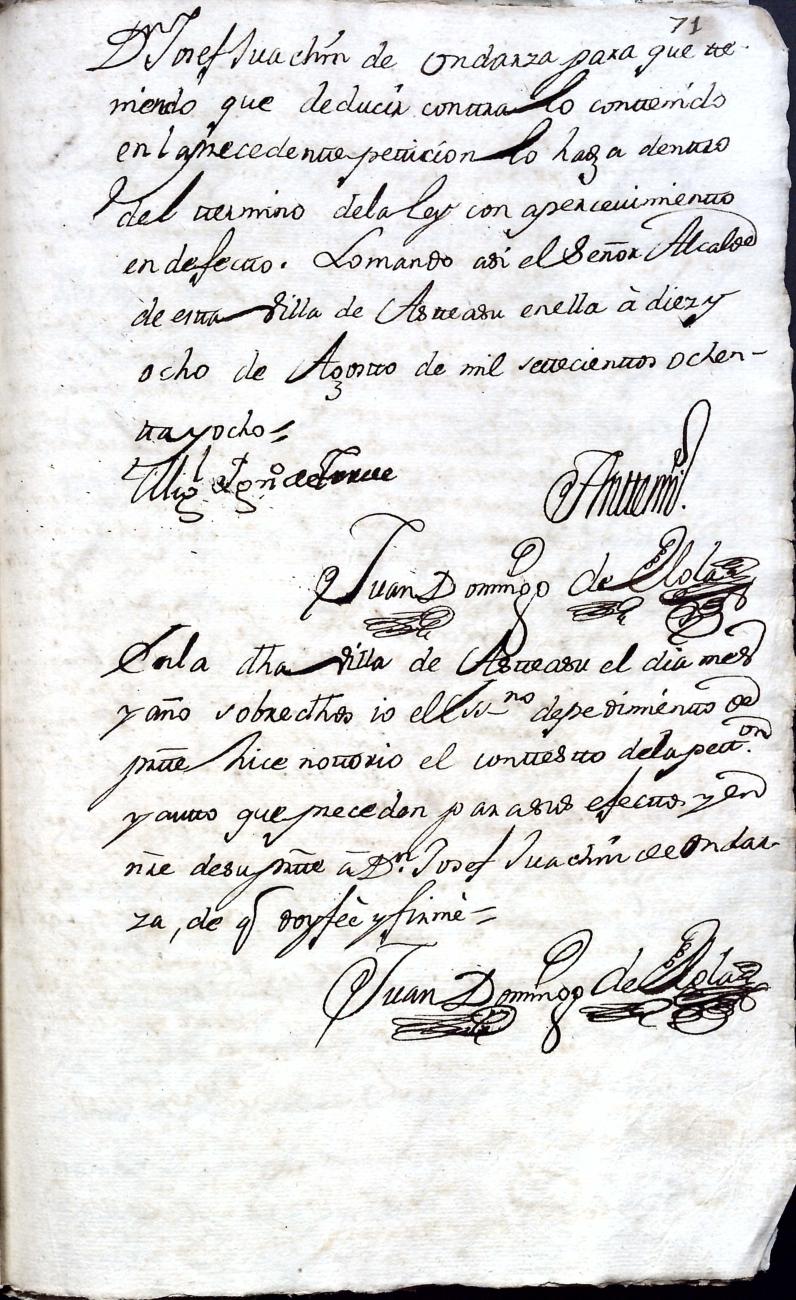 71
Dn Josef Juachin de Ondarza para que te-
niendo que deducir contra lo contenido
en la precedente peticion lo haga dentro
del termino dela ley con apercevimiento
en defecto. Lo mando asi el Señor Alcalde
de esta Villa de Asteasu en ella à diez y
ocho de Agosto de mil setecientos ochen-
ta y ocho =
Migl Ygno de
Antemi.
Juan Domingo de Elola
En la dha Villa de Asteasu el dia mes
y año sobredhos io el Ssno de pedimento de
prte hice notorio el contesto dela petton
y auto que preceden para sus efectos y en
nre de su prte à Dn Josef Juachin de Ondar-
za, de q doy feè y firmè =
Juan Domingo de Elola